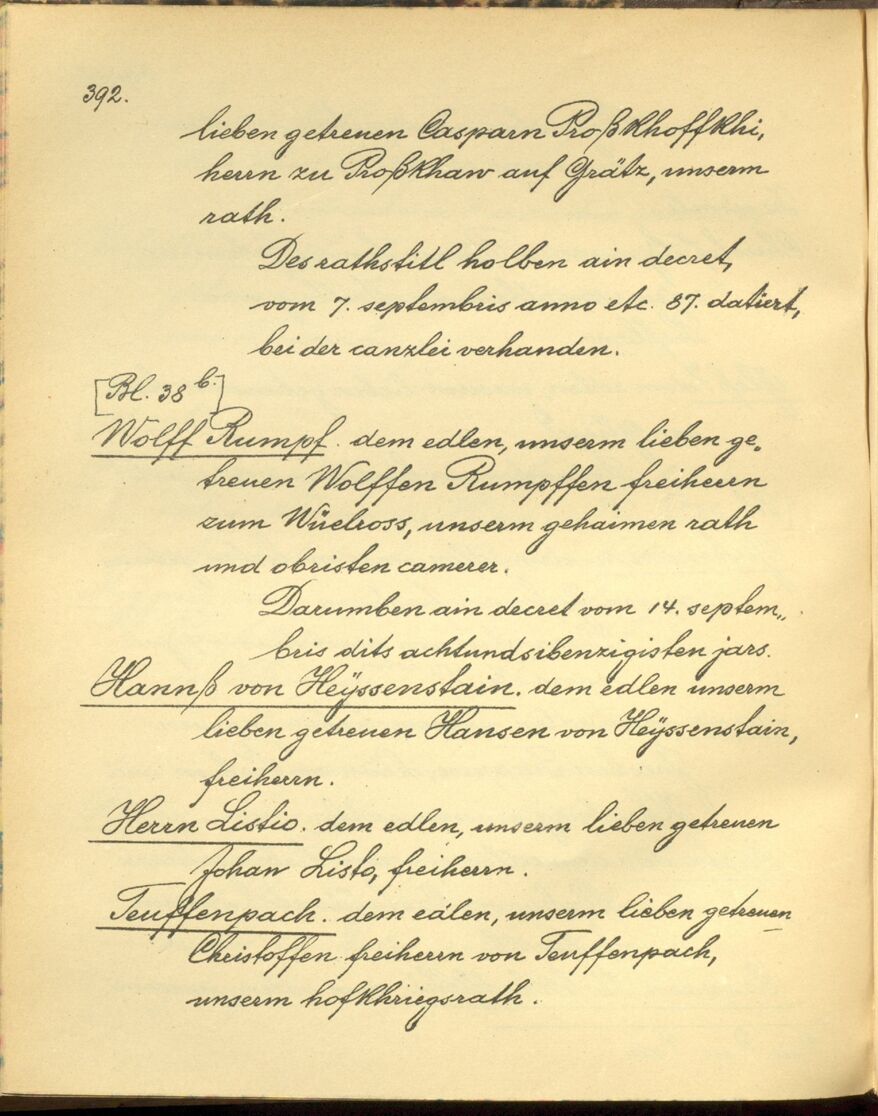 392.
lieben getreuen Casparn Proßkhoffkhi,
herrn zu Proßkhaw auf Grätz, unserm
rath.
Des rathstitl holben ain decret,
vom 7. septembris anno etc. 87. datiert,
bei der canzlei verhanden.
[Bl. 38 b.]
Wolff Rumpf. dem edlen, unserm lieben ge„
treuen Wolffen Rumpffen freiherrn
zum Wüelross, unserm gehaimen rath
und obristen camerer.
Darumben ain decret vom 14. septem„
bris dits achtundsibenzigisten jars.
Hannß von Heÿssenstain. dem edlen unserm
lieben getreuen Hansen von Heÿssenstain,
freiherrn.
Herrn Listio. dem edlen, unserm lieben getreuen
Johan Listo, freiherrn.
Teuffenpach. dem edlen, unserm lieben getreuen
Christoffen freiherrn von Teuffenpach,
unserm hofkhriegsrath.